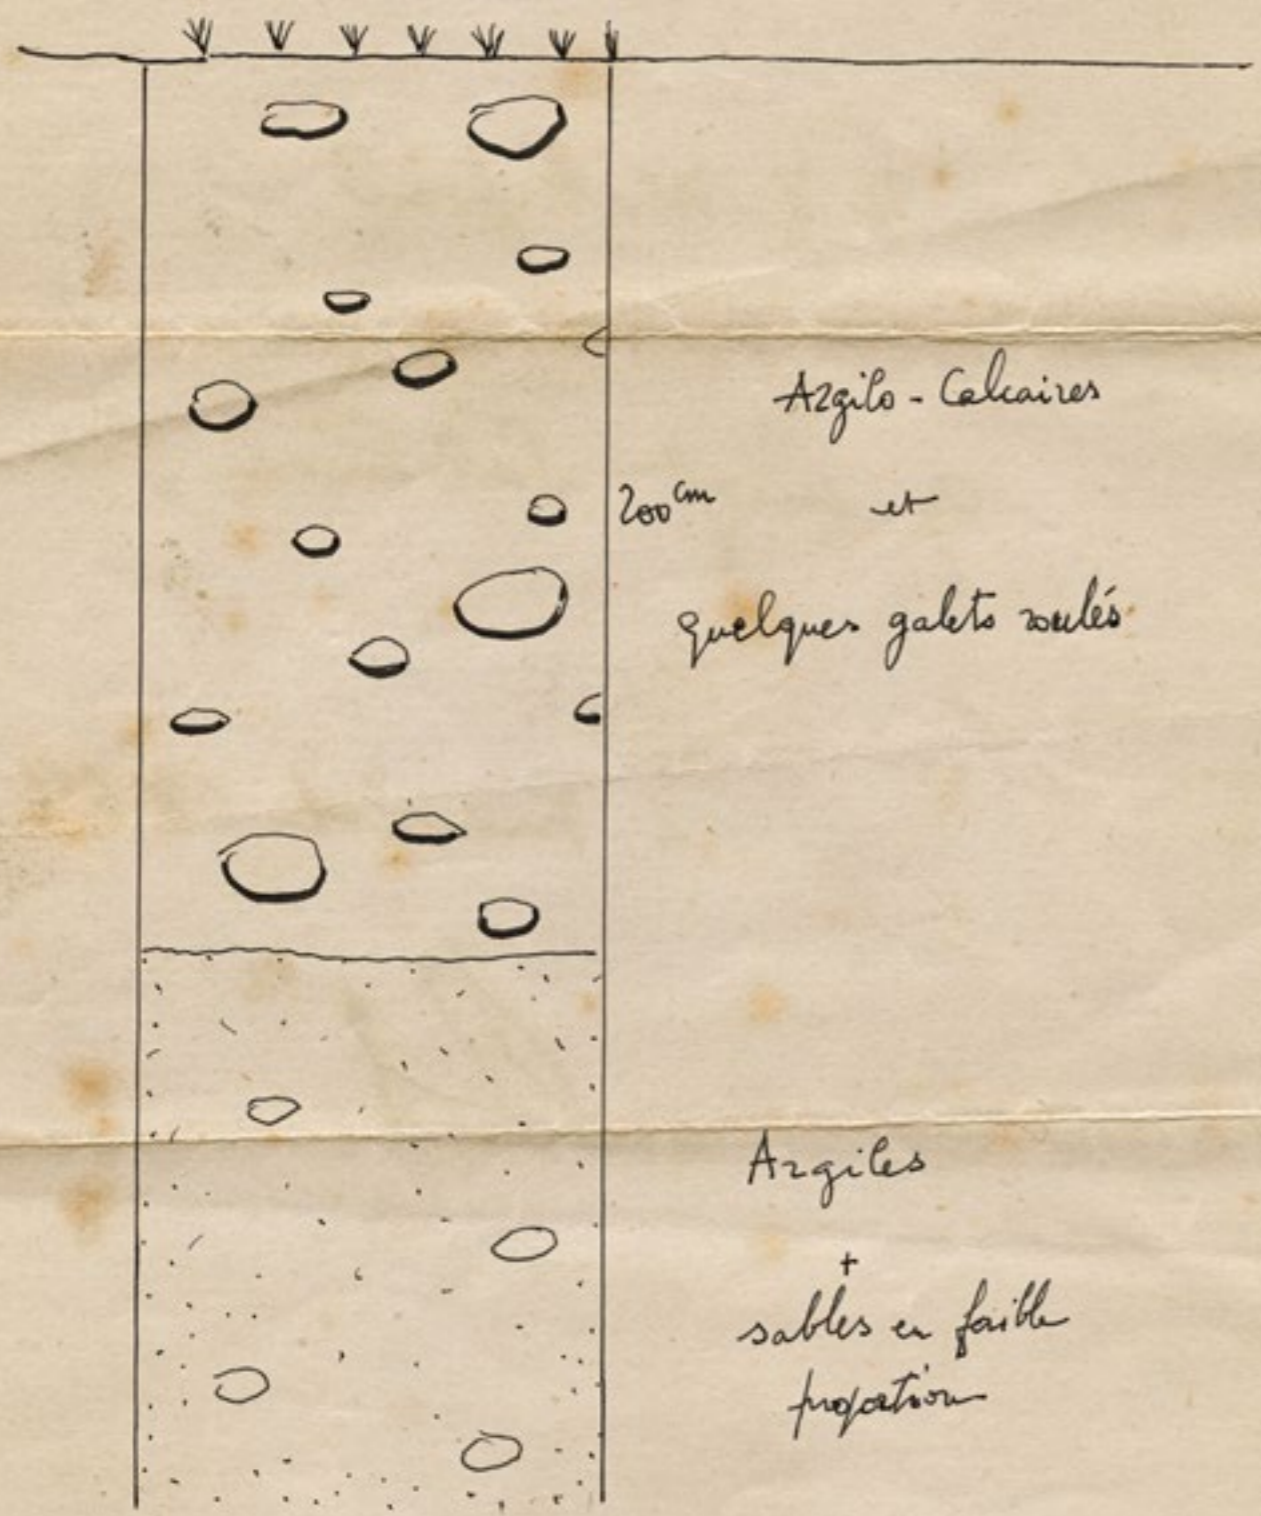 Argilo - Calcaires
200 cm et
quelques galets roulés
Argiles
+
sables en faible
proportion